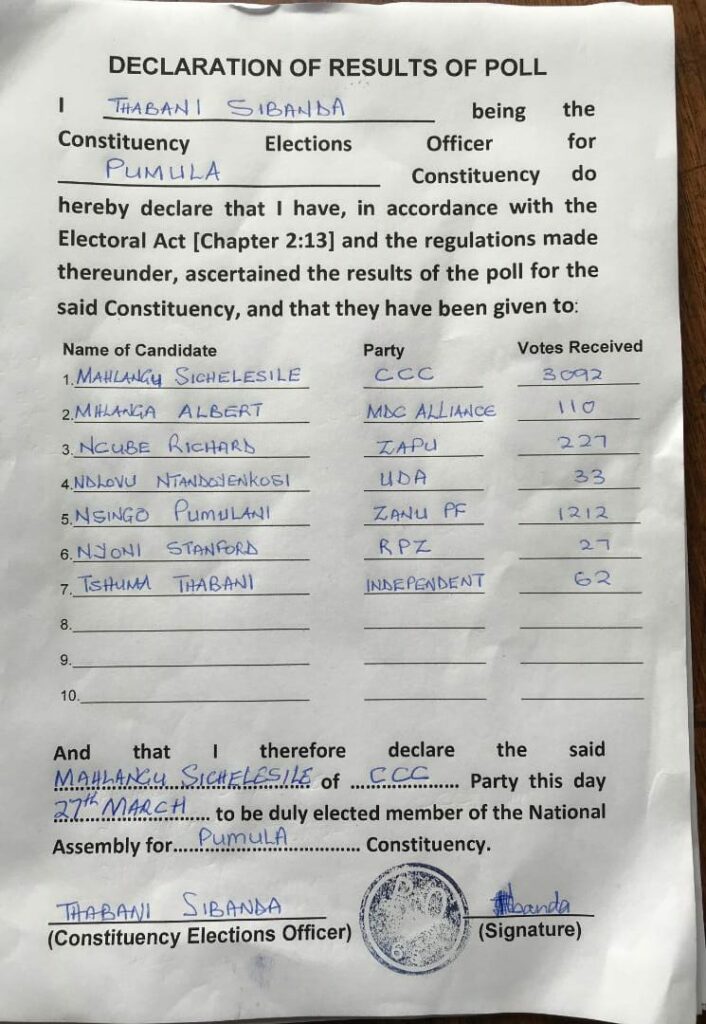 DECLARATION OF RESULTS OF POLL
I THABANI SIBANDA being the
Constituency Elections Officer for
PUMULA Constituency do
hereby declare that I have, in accordance with the
Electoral Act [Chapter 2:13] and the regulations made
thereunder, ascertained the results of the poll for the
said Constituency, and that they have been given to:
Name of Candidate Party Votes Received
1. MAHLANGU SICHELESILE CCC 3092
2. MHLANGA ALBERT MDC ALLIANCE 110
3. NCUBE RICHARD ZAPU 227
4. NDLOVU NTANDOYENKOSI UDA 33
5. NSINGO PUMULANI ZANU PF 1212
6. NYONI STANFORD RPZ 27
7. TSHUMA THABANI INDEPENDENT 62
8.
9.
10.
And that I therefore declare the said
MAHLANGU SICHELESILE of CCC Party this day
27th MARCH to be duly elected member of the National
Assembly for PUMULA Constituency.
THABANI SIBANDA
(Constituency Elections Officer) (Signature)